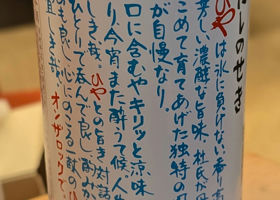 いのせき
ひやは氷に負けない、香り高
芳しい濃醇な旨味、杜氏が丹
こめて育てあげた独特の
が自慢なり。
口に含むやキリッと涼味
り、今宵また酔うて候、人生
しき哉。ひやとの旨き対話
ひとりで呑んで良し、酌みか
も良し、いにのる
宜しき哉。オンザロックで、